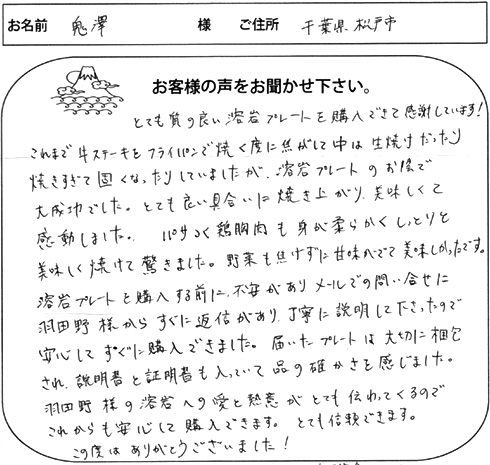 お名前 鬼澤 様 ご住所 千葉県松戸市
お客様の声をお聞かせ下さい。
とても質の良い溶岩プレートを購入できて感謝しています!
これまで牛ステーキをフライパンで焼く度に焦がして中は生焼けだったり
焼きすぎて固くなったりしていましたが、溶岩プレートのお陰で
大成功でした。とても良い具合いに焼き上がり、美味しくて
感動しました。 パサつく鶏胸肉も身が柔らかくしっとりと
美味しく焼けて驚きました。野菜も焦げずに甘味がでて美味しかったです。
溶岩プレートを購入する前に、不安がありメールでの問い合せに
羽田野様からすぐに返信があり、丁寧に説明して下さったので
安心してすぐに購入できました。届いたプレートは大切に梱包
され、説明書と証明書も入っていて品の確かさを感じました。
羽田野様の溶岩への愛と熱意がとても伝わってくるので
これからも安心して購入できます。とても信頼できます。
この度はありがとうございました!